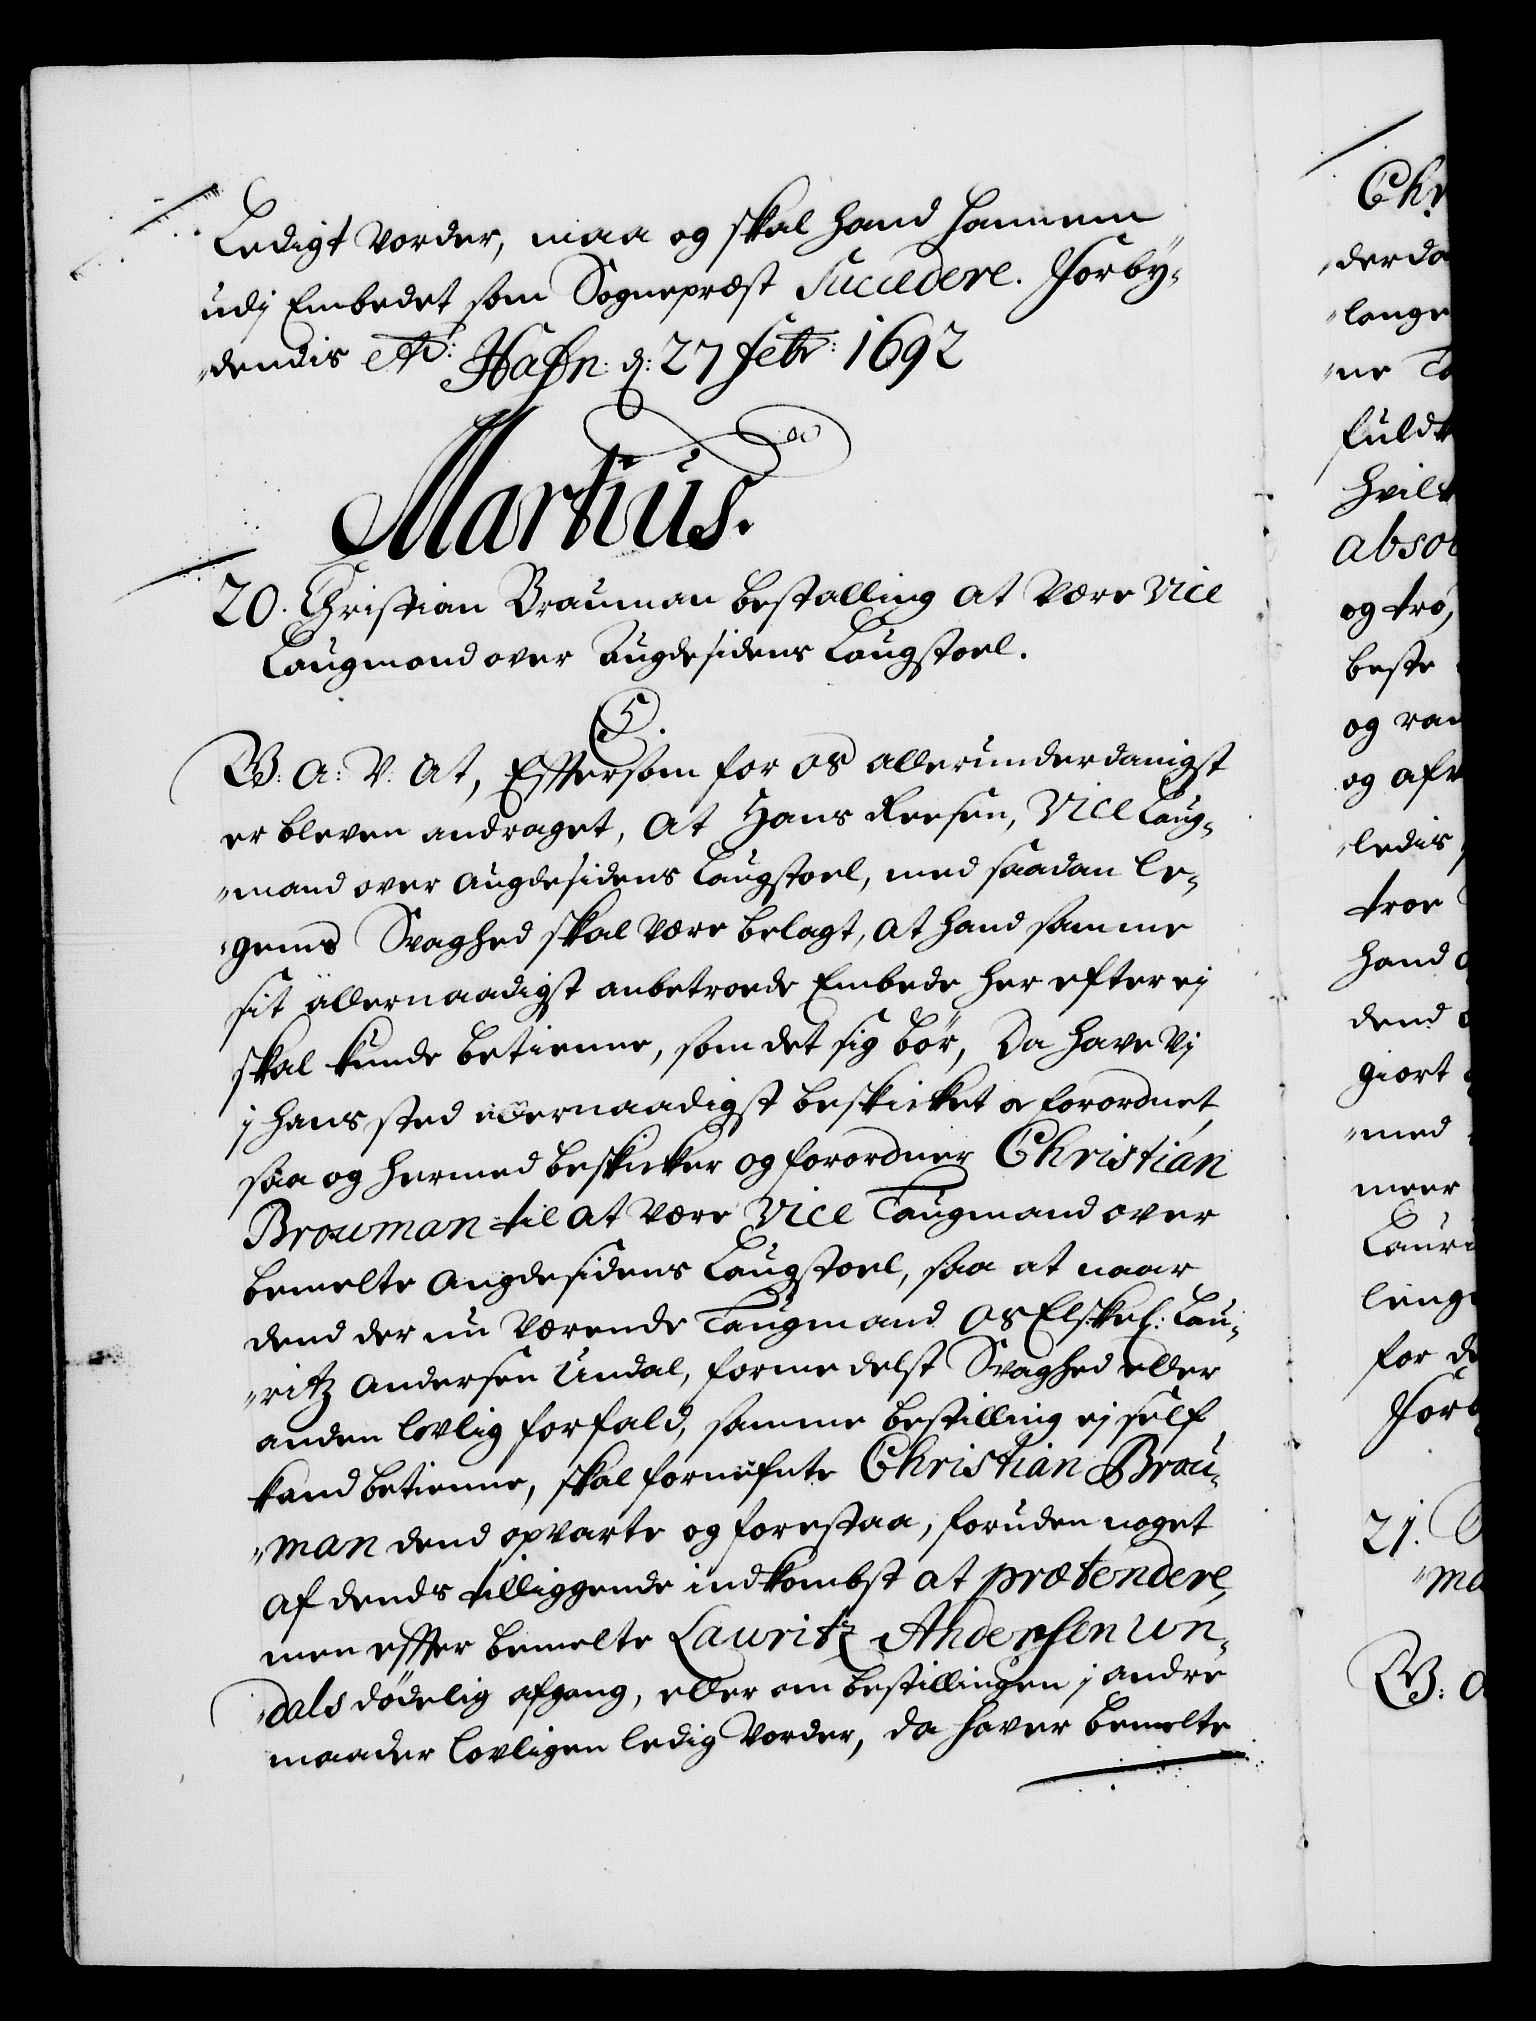 Ledigt vorder, maa og skal hand hannem
udj Embedet som Sognepræst Succedere. Forby¬
dendis etc: Hafn: d: 27 Febr: 1692
Martius.
20. Christian Brauman bestalling at være Vice
Laugmand over Augdesidens Laugstoel.
C5.
G: A: V: At, Effter som for os allerunderdanigst
er bleven andraget, at Hans Reesen, Vice Laug¬
mand over Augdesidens Laugstoel, med saadan le¬
gems Svaghed skal være belagt, at hand samme
sit allernaadigst anbetroede Embede her efter ej
skal kunde betienne, som det sig bør, Da have Vj
j hans sted allernaadigst beskicket oc forordnet,
saa og hermed beskicker og forordner Christian
Brouman til at være Vice Laugmand over
bemelte Augdesidens Laugstoel, saa at naar
dend der nu værende Laugmand Os Elskel: Lau¬
ritz Andersen Undal, formedelst Svaghed eller
anden lovlig forfald, samme bestilling ej self
kand betienne, skal fornefnte Christian Brou¬
man dend opvarte og forestaa, foruden noget
af dends tilliggende indkombst at prætendere,
men effter bemelte Lauritz Andersen Un¬
dals dødelig afgang, eller om bestillingen j andre
maader lovligen ledig vorder, da haver bemelte
Chr
derda
lange
ne
fuldt
hvilt
absol
og troe,
beste
og
og afv
ledis
troe
hand
dend
giort
med
meer
Lauri
leng
for de
Forb
21.
G: A